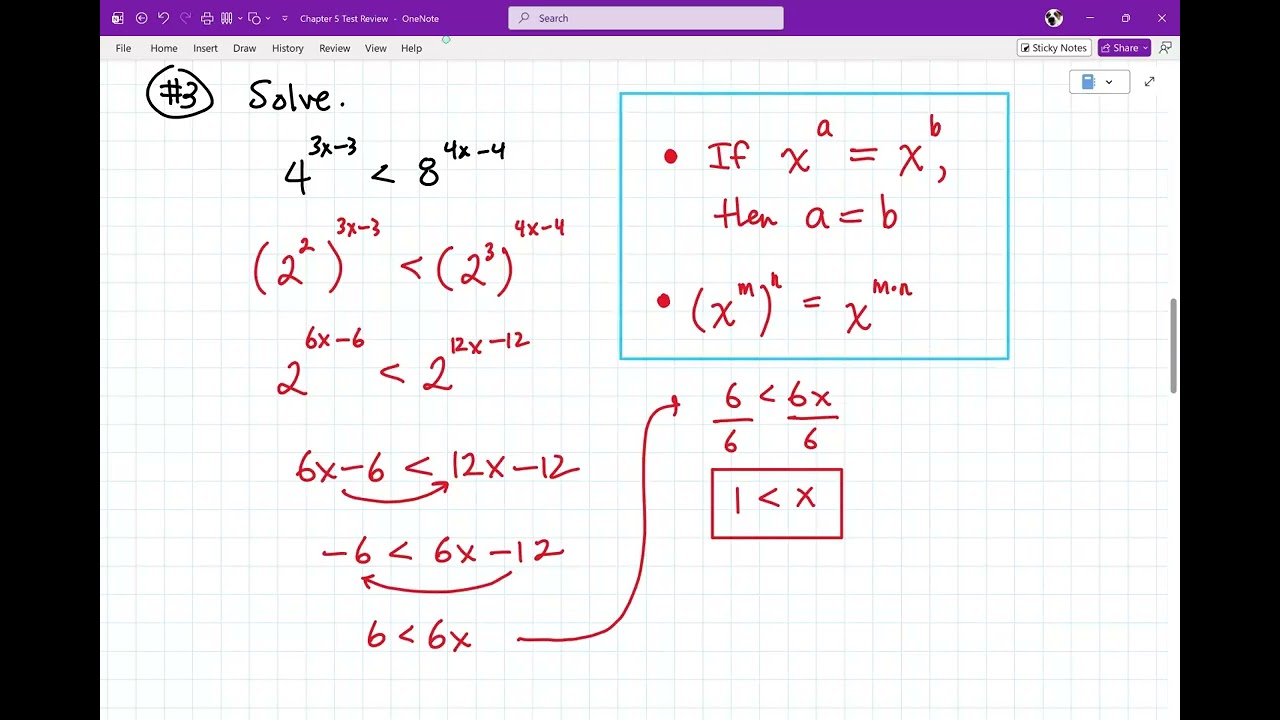 Chapter 5 Test Review - OneNote
Search
File Home Insert Draw History Review View Help
Sticky Notes Share
#3 Solve.
4^(3x-3) < 8^(4x-4)
(2^2)^(3x-3) < (2^3)^(4x-4)
2^(6x-6) < 2^(12x-12)
6x-6 < 12x-12
-6 < 6x-12
6 < 6x
• If x^a = x^b,
then a = b
• (x^m)^n = x^(m·n)
6/6 < 6x/6
1 < x